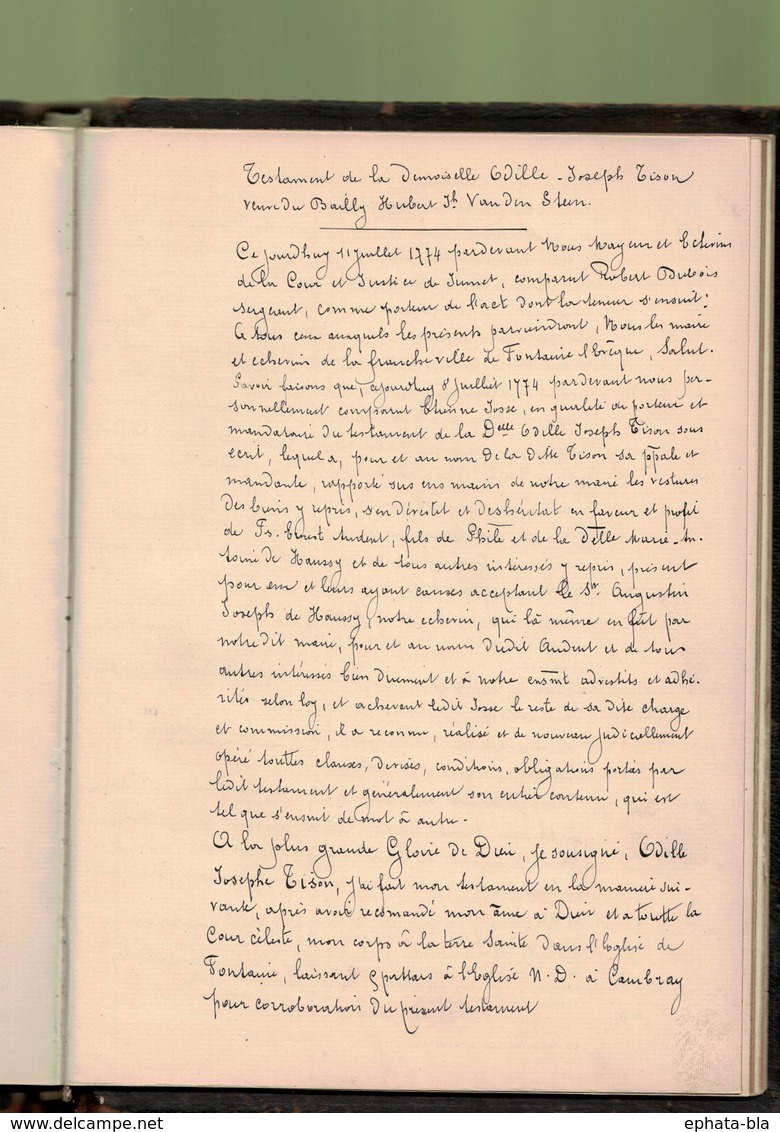 Testament de la Demoiselle Odille - Joseph Tison
veuve du Bailly Hubert Jh Van den Steen.
Ce jourdhuy 11 juillet 1774 pardevant Nous Mayeur et Echevins
de la Cour et Justice de Jumet, comparut Robert Dubois
sergeant, comme porteur de l'act dont la teneur s'ensuit:
A tous ceux auxquels les présents parviendront, Nous les maire
et echevins de la franche ville de Fontaine l'Evêque, Salut.
Savoir faisons que, cejourdhuy 8 Juillet 1774 pardevant nous per-
sonnellement comparut Etienne Josse, en qualité de porteur et
mandataire du testament de la Delle Odille Joseph Tison sous
ecrit, lequel a, pour et au nom de la ditte Tison sa ppale et
mandante, rapporté sus ens mains de notre maire les vestures
des biens y repris, s'en dévestet et deshéritat en faveur et profit
de Fs. Ernest Audent, fils de Phile et de la Delle Marie-An-
toine de Haussy et de tous autres intéressés y repris, présent
pour eux et leurs ayant causes acceptant le Sr. Augustin
Joseph de Haussy, notre echevin, qui là même en fut par
notredit maire, pour et au nom dudit Audent et de tous
autres intéressés bien duement et à notre ensmt advestits et adhé-
rités selon loy, et achevant ledit Josse le reste de sa dite charge
et commission, il a reconnu, réalisé et de nouveau judiciellement
opéré touttes clauses, devises, conditions, obligations portés par
ledit testament et généralement son entier contenu, qui est
tel que s'ensuit de mot à autre.
A la plus grande Gloire de Dieu, je sousigné, Odille
Josephe Tison, j'ai fait mon testament en la manière sui-
vante, après avoir recomandé mon âme à Dieu et a toutte la
Cour céleste, mon corps à la terre Sainte dans l'Eglise de
Fontaine, laissant 5 pattars à l'Eglise N.D. à Cambray
pour corroboration du présent testament
ephata-bla